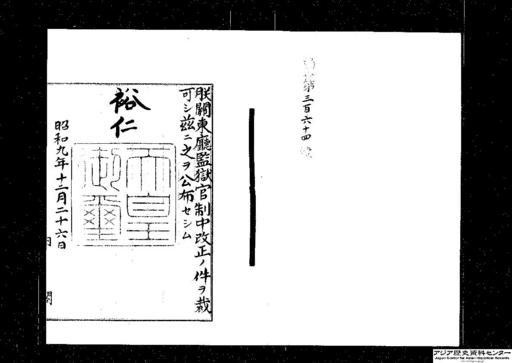 第三百六十四
朕關東廳監獄官制中改正ノ件ヲ裁
可シ茲ニ之ヲ公布セシム
裕仁
天皇御璽
昭和九年十二月二十六日
アジア歴史資料センター
Japan Center for Asian Historical Records